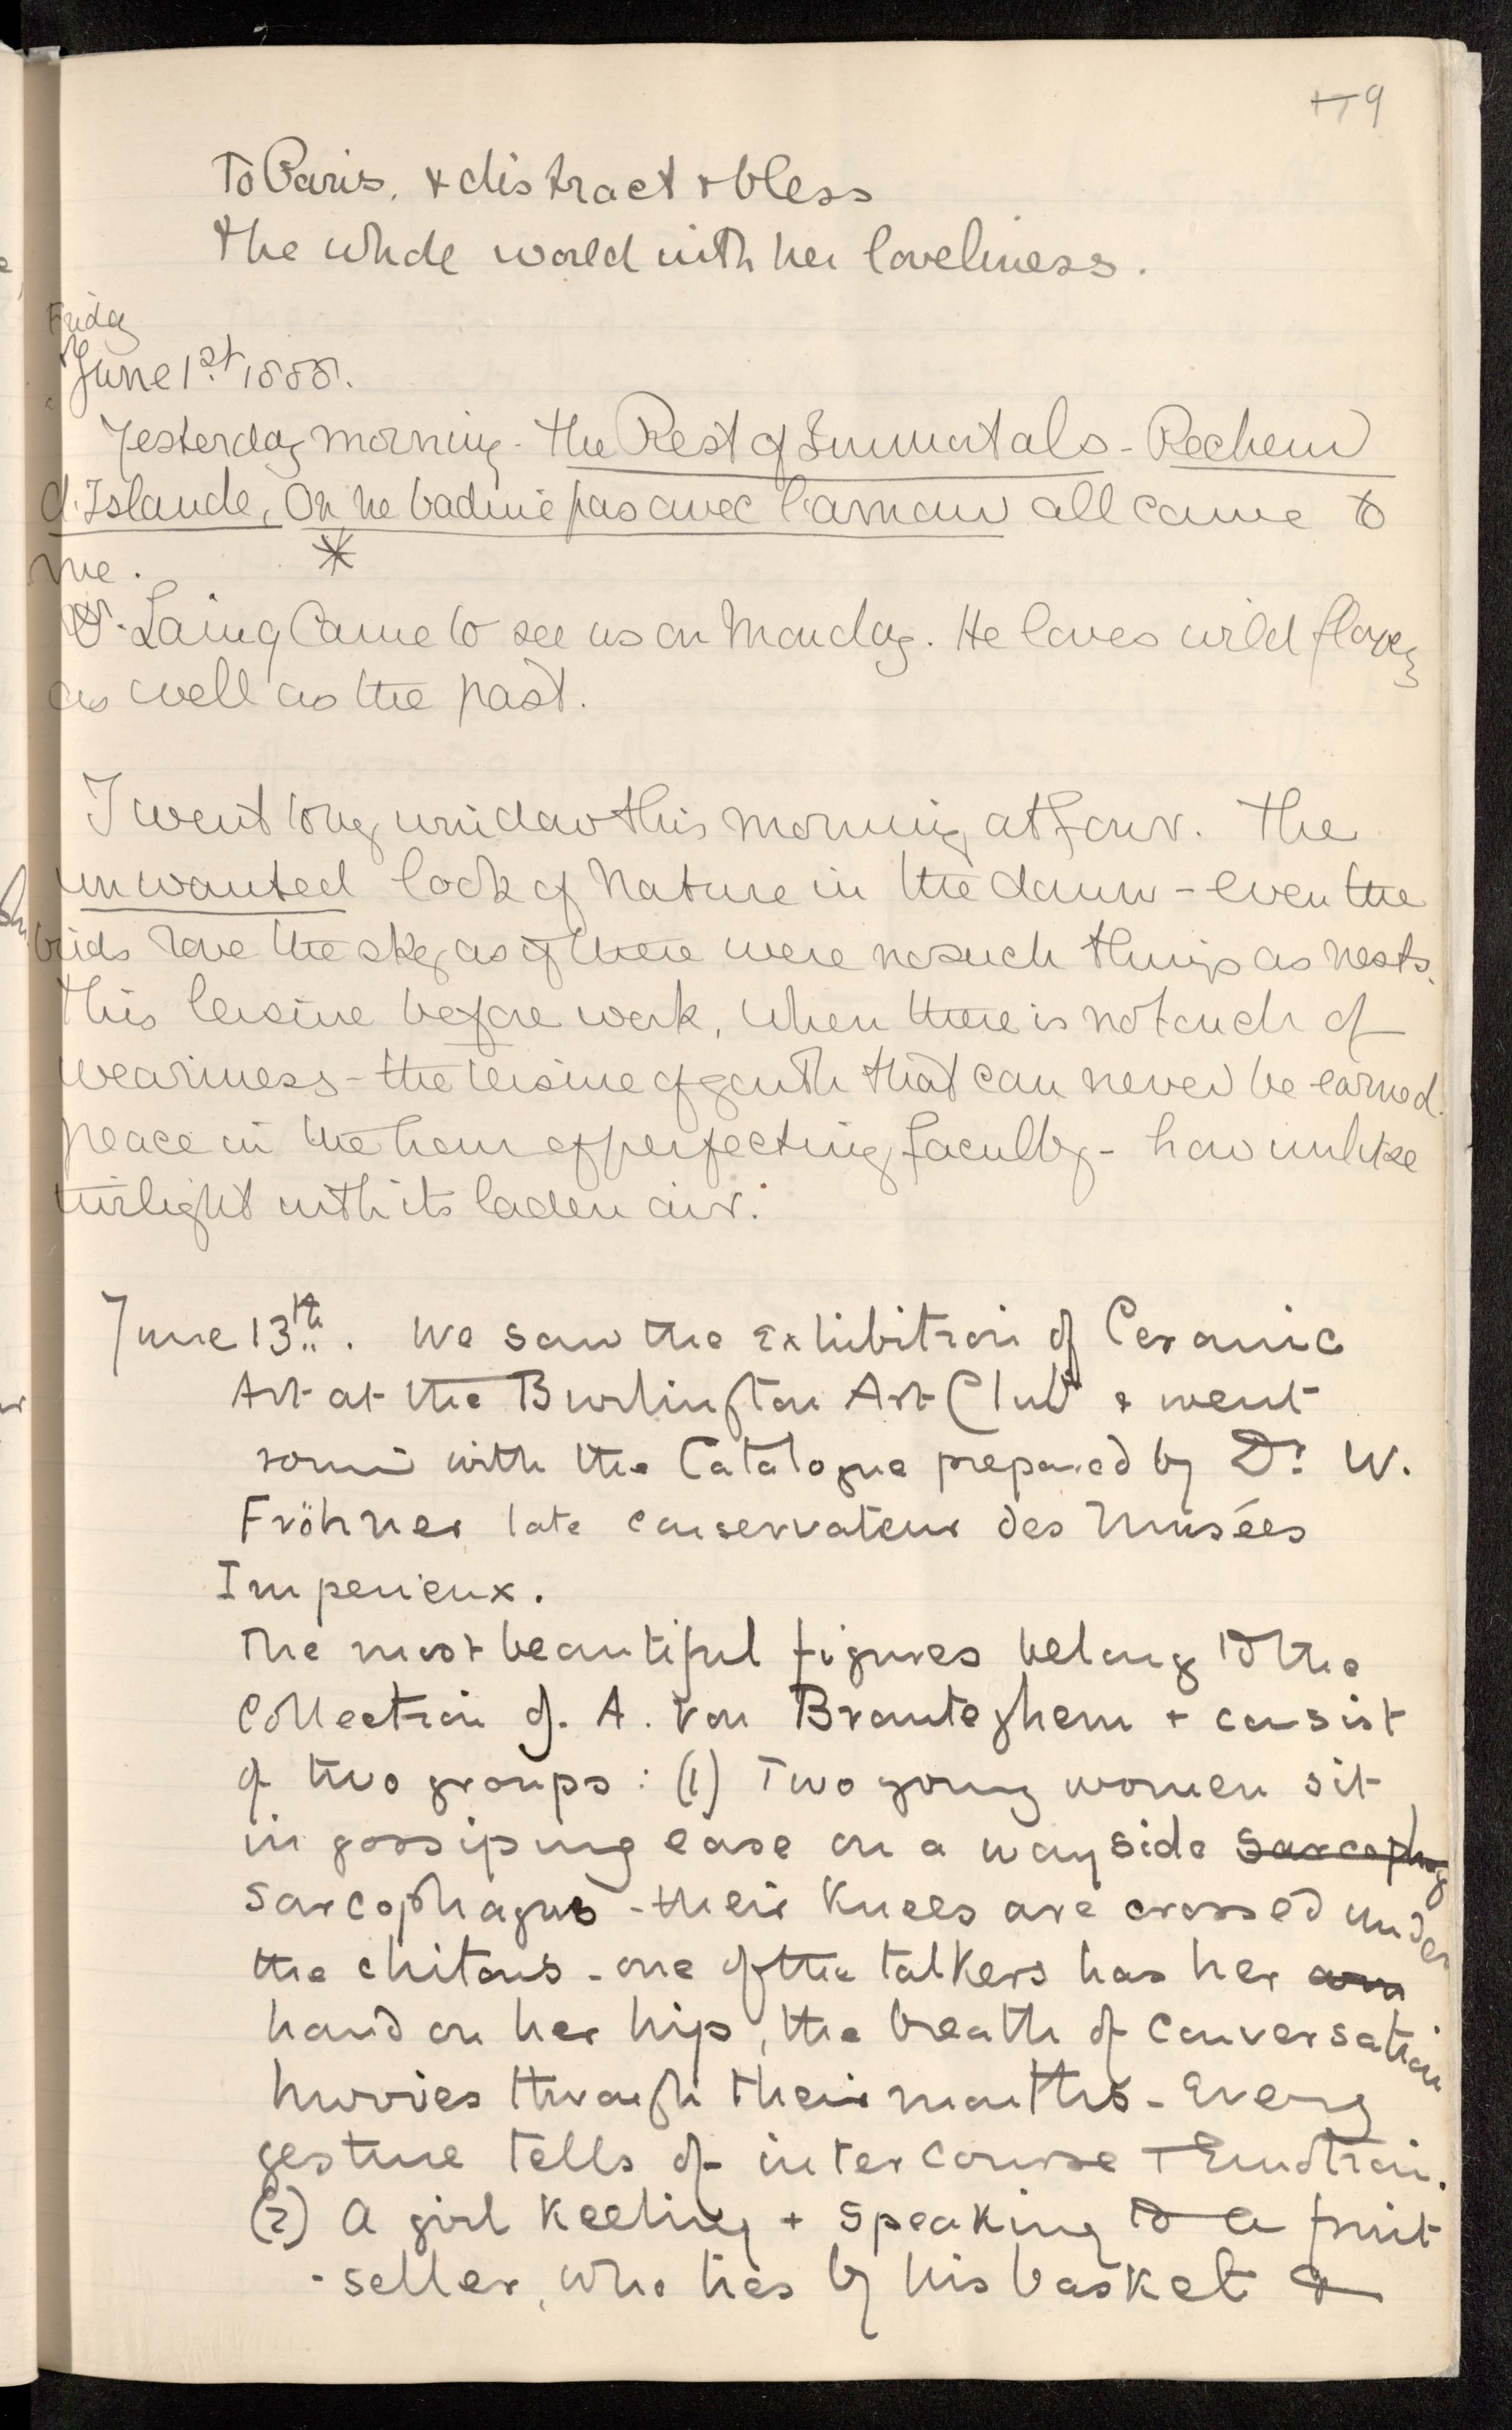 9
To Paris, & distract & bless
the whole world with her loveliness.
Friday
June 1st 1888.
Yesterday morning - the Rest of Immortals - Pecheur
d'Islande, On ne badine pas avec l'amour all came to
me.
Dr. Laing came to see us on Monday. He loves wild flowers
as well as the past.
I went to my window this morning at four. The
unwonted look of Nature in the dawn - even the
birds rove the sky as if there were no such things as nests.
This leisure before work, when there is not ouch of
weariness - the leisure of youth that can never be earned.
peace in the hour of perfecting faculty - how unlike
twilight with its laden air.
June 13th. We saw the Exhibition of Ceramic
Art at the Burlington Art Club & went
round with the Catalogue prepared by Dr. W.
Fröhner late conservateur des Musées
Imperieux.
The most beautiful figures belong to the
Collection of A. van Branteghem + consist
of two groups: (1) Two young women sit
in gossiping ease on a wayside sarcophag
sarcophagus - their knees are crossed under
the chitons - one of the talkers has her arm
hand on her hip, the breath of conversation
hurries through their mouths - Every
gesture tells of intercourse + Emotion.
(2) A girl keeling + speaking to a fruit
-seller, who lies by his basket &